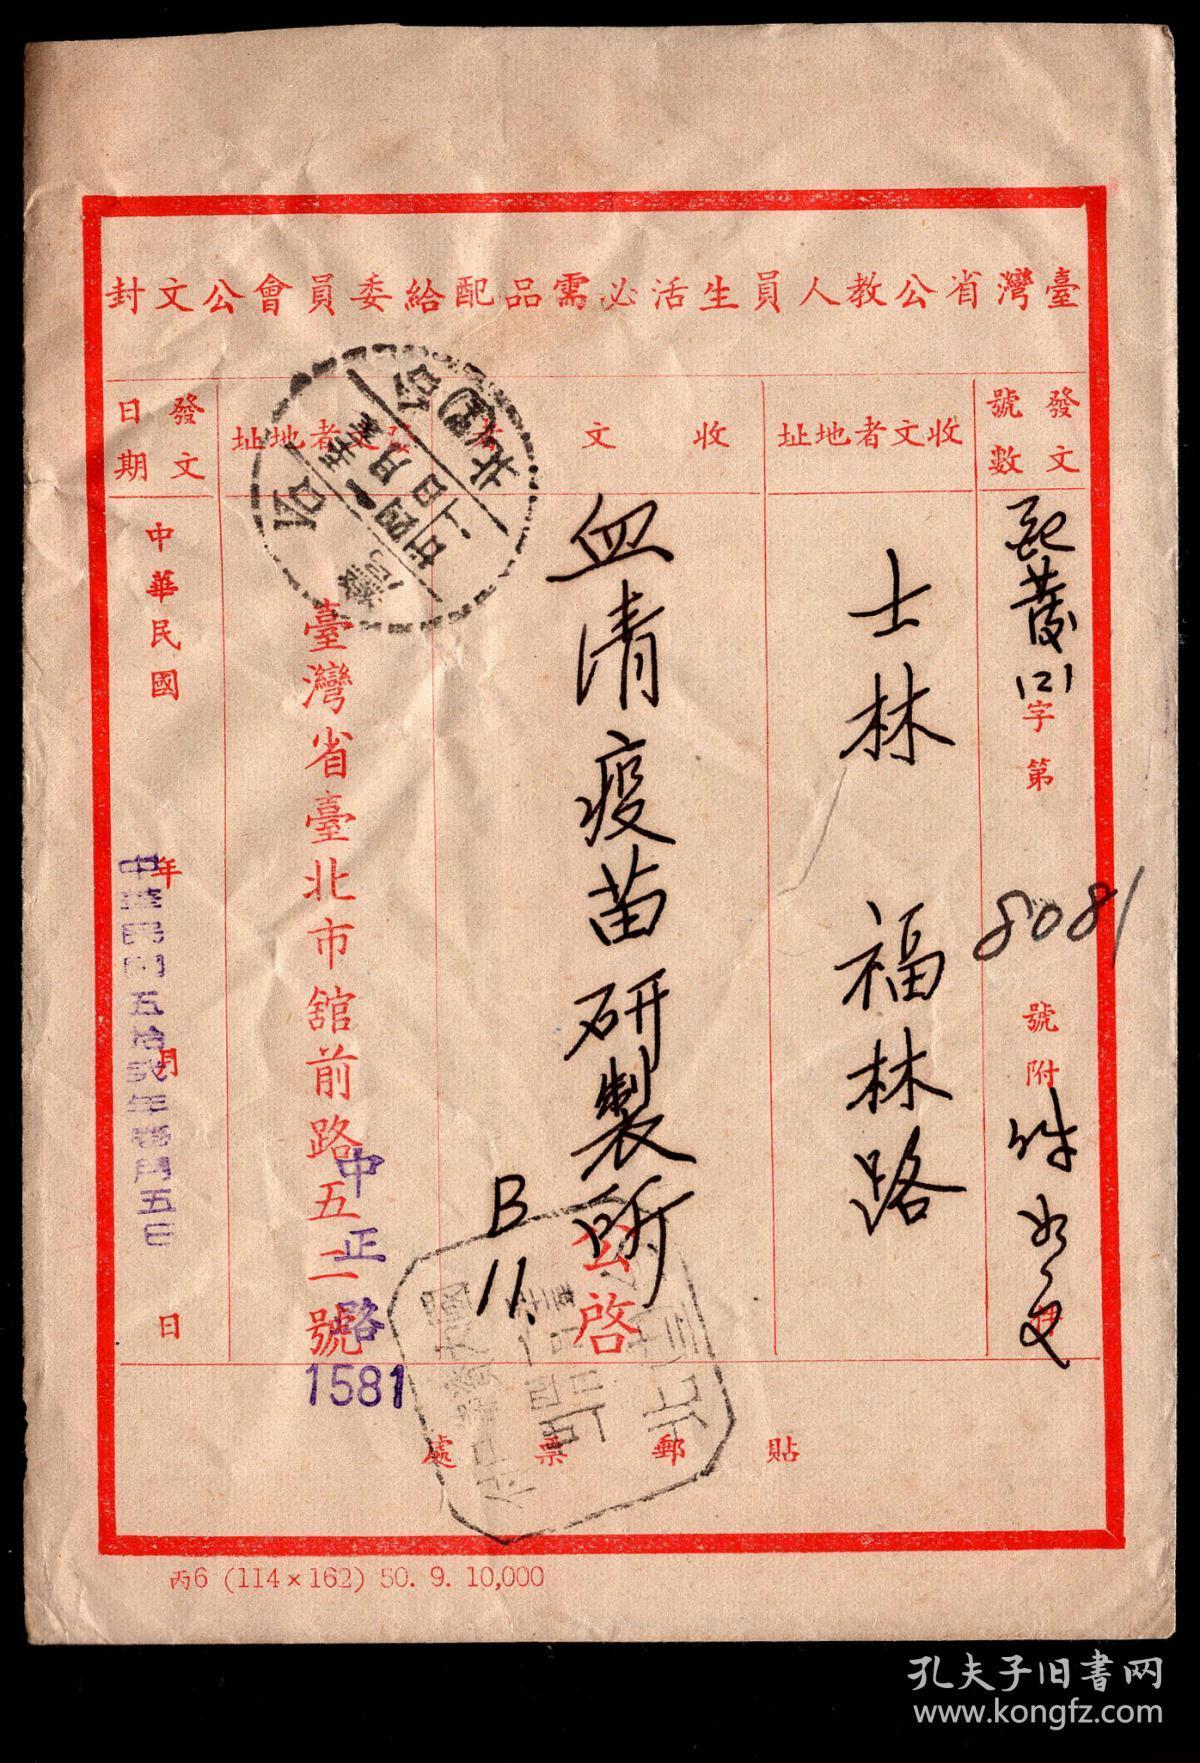 臺灣省公教人員生活必需品配給委員會公文封
發文號數
字第
8081
號附
收文者地址
士林 福林路
收文
血清疫苗研製所
公啓
B
11.
發文者地址
臺灣省臺北市舘前路五二號
中正路
1581
發文日期
中華民國 年 月 日
中華民國五拾貳年壹月五日
貼郵票處
丙6 (114×162) 50. 9. 10,000
孔夫子旧书网
www.kongfz.com